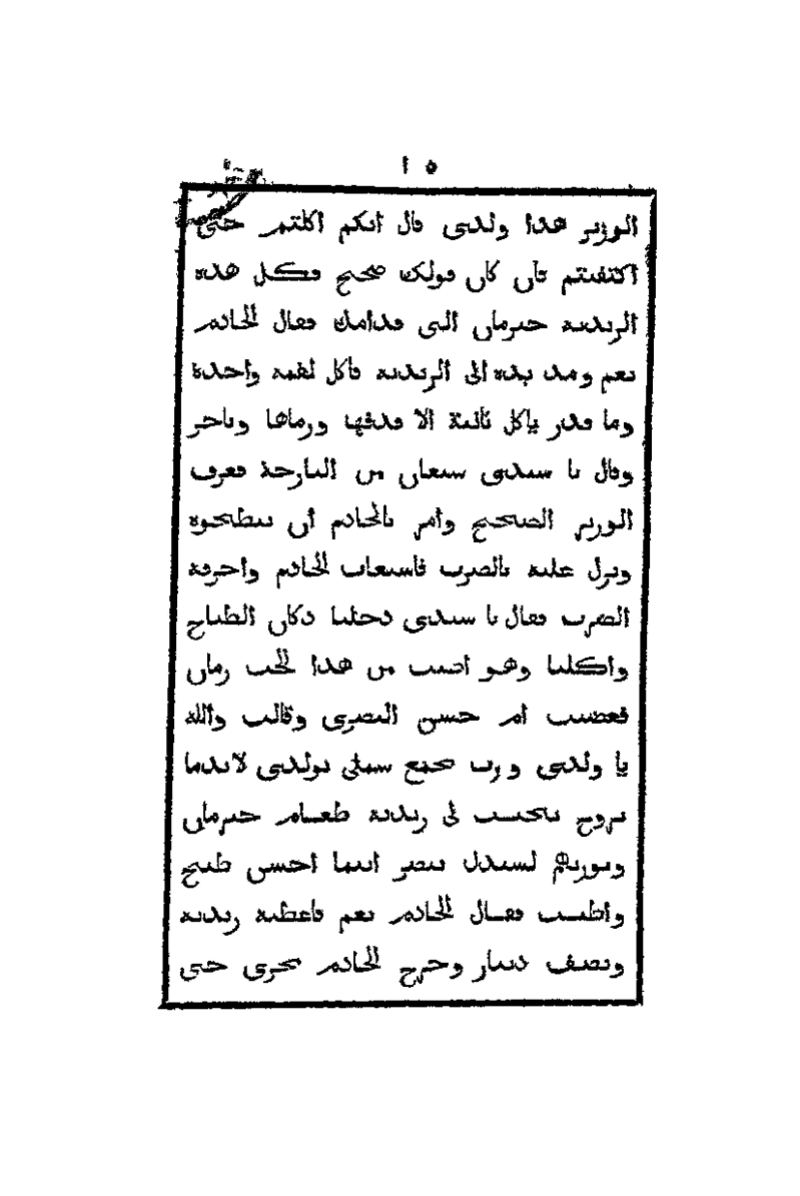 ٥١
الوزير هدا ولدى قال انكم اكلتم حتى
اكتفيتم فان كان قولك صحيح فكل هده
الزبدية حبرمان التى قدامك فقال الخادم
نعم ومد يده الى الزبدية فاكل لقمة واحدة
وما قدر ياكل ثانية الا قدفها ورماها وتاخر
وقال يا سيدى سبعان من البارحة فعرف
الوزير الصحيح وامر بالخادم ان يبطحوه
ونزل عليه بالضرب فاستغاث الخادم واحرقه
الضرب فقال يا سيدى دخلنا دكان الطباخ
واكلنا وهو اطيب من هدا الحب رمان
فغضبت ام حسن البصرى وقالت والله
يا ولدى ورب يجمع سملى بولدى لابدما
تروح تجيب لى زبدية طعام حبرمان
وتوريها لسيدك تبصر ايما احسن طبيخ
واطيب فقال الخادم نعم فاعطته زبدية
ونصف دينار وخرج الخادم يجرى حتى